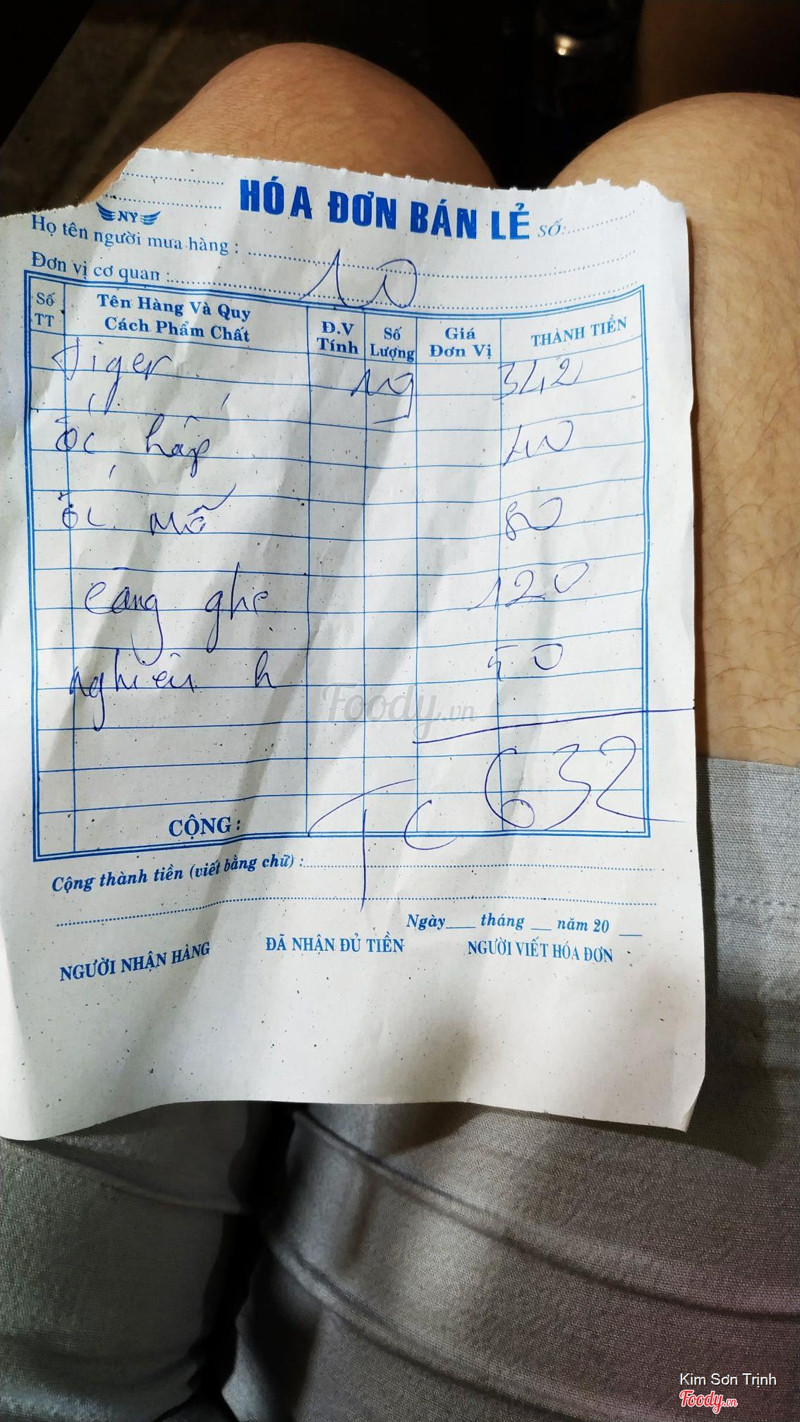 HÓA ĐƠN BÁN LẺ SỐ:
NY
Họ tên người mua hàng :
Đơn vị cơ quan : 10
Số TT Tên Hàng Và Quy Cách Phẩm Chất Đ.V Tính Số Lượng Giá Đơn Vị THÀNH TIỀN
Tiger 19 342
ốc hấp 40
ốc mỡ 80
càng ghẹ 120
nghiêu h 50
Foody.vn
CỘNG: TC 632
Cộng thành tiền (viết bằng chữ) :
Ngày tháng năm 20
NGƯỜI NHẬN HÀNG ĐÃ NHẬN ĐỦ TIỀN NGƯỜI VIẾT HÓA ĐƠN
Kim Sơn Trịnh
Foody.vn